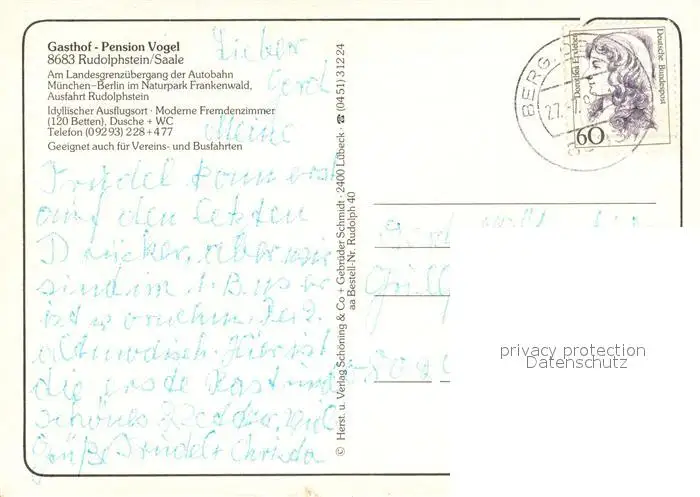 Gasthof - Pension Vogel
8683 Rudolphstein/Saale
Am Landesgrenzübergang der Autobahn
München-Berlin im Naturpark Frankenwald,
Ausfahrt Rudolphstein
Idyllischer Ausflugsort · Moderne Fremdenzimmer
(120 Betten), Dusche + WC
Telefon (0 92 93) 228 + 477
Geeignet auch für Vereins- und Busfahrten
Lieber
Gerd
Meine
Trudel kam erst
auf den letzten
Drücker, aber wir
sind im 1. Bus er
ist vornehm
altmodisch. Hier ist
die erste Rast und
schönes Wetter. Viel
Grüße Trudel + Christa
© Herst. u. Verlag Schöning & Co + Gebrüder Schmidt · 2400 Lübeck · ☎ (04 51) 3 12 24
aa Bestell-Nr. Rudolph 40
BERG
27.
Dorothea Erxleben
Deutsche Bundespost
60
Gerd
privacy protection
Datenschutz